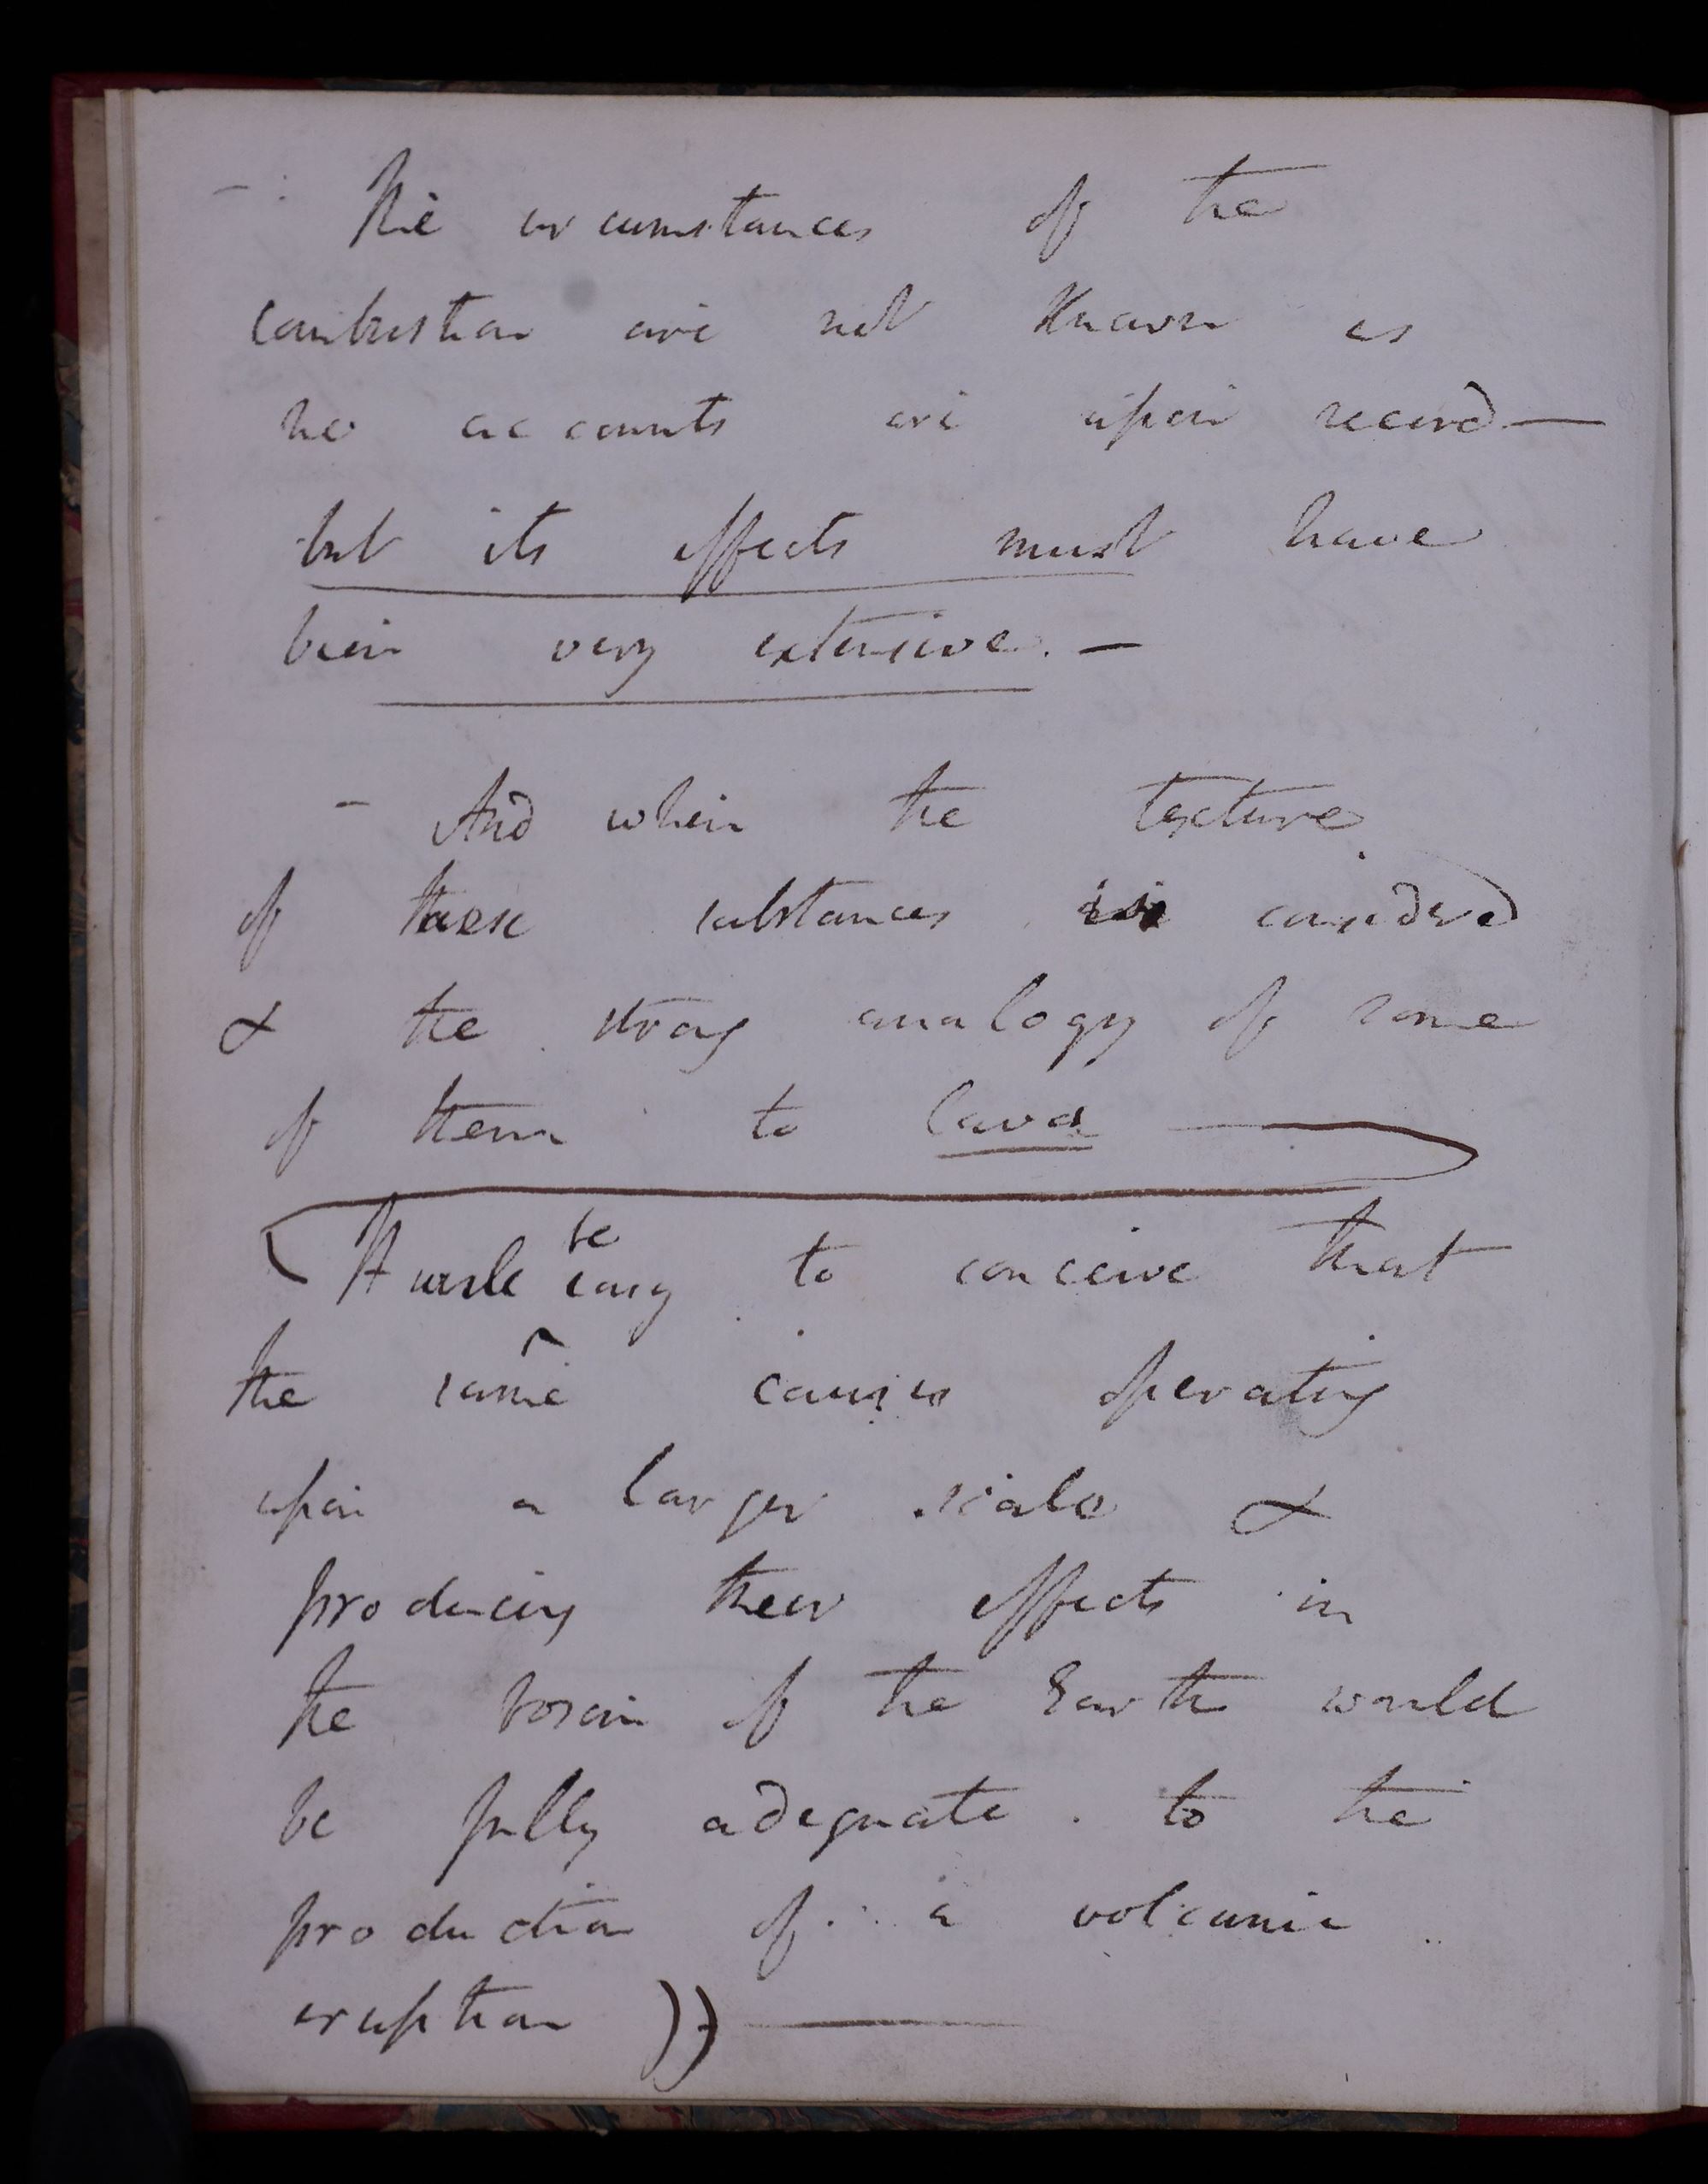 - The circumstances of the
combustion are not known as
no accounts are upon record —
but its effects must have
been very extensive. —
- And when the texture
of these substances is considered
& the strong analogy of some
of them to lava —
It will be easy to conceive that
the same causes operating
upon a larger scale &
producing their effects in
the bosom of the Earth would
be fully adequate to the
production of a volcanic
eruption )) —